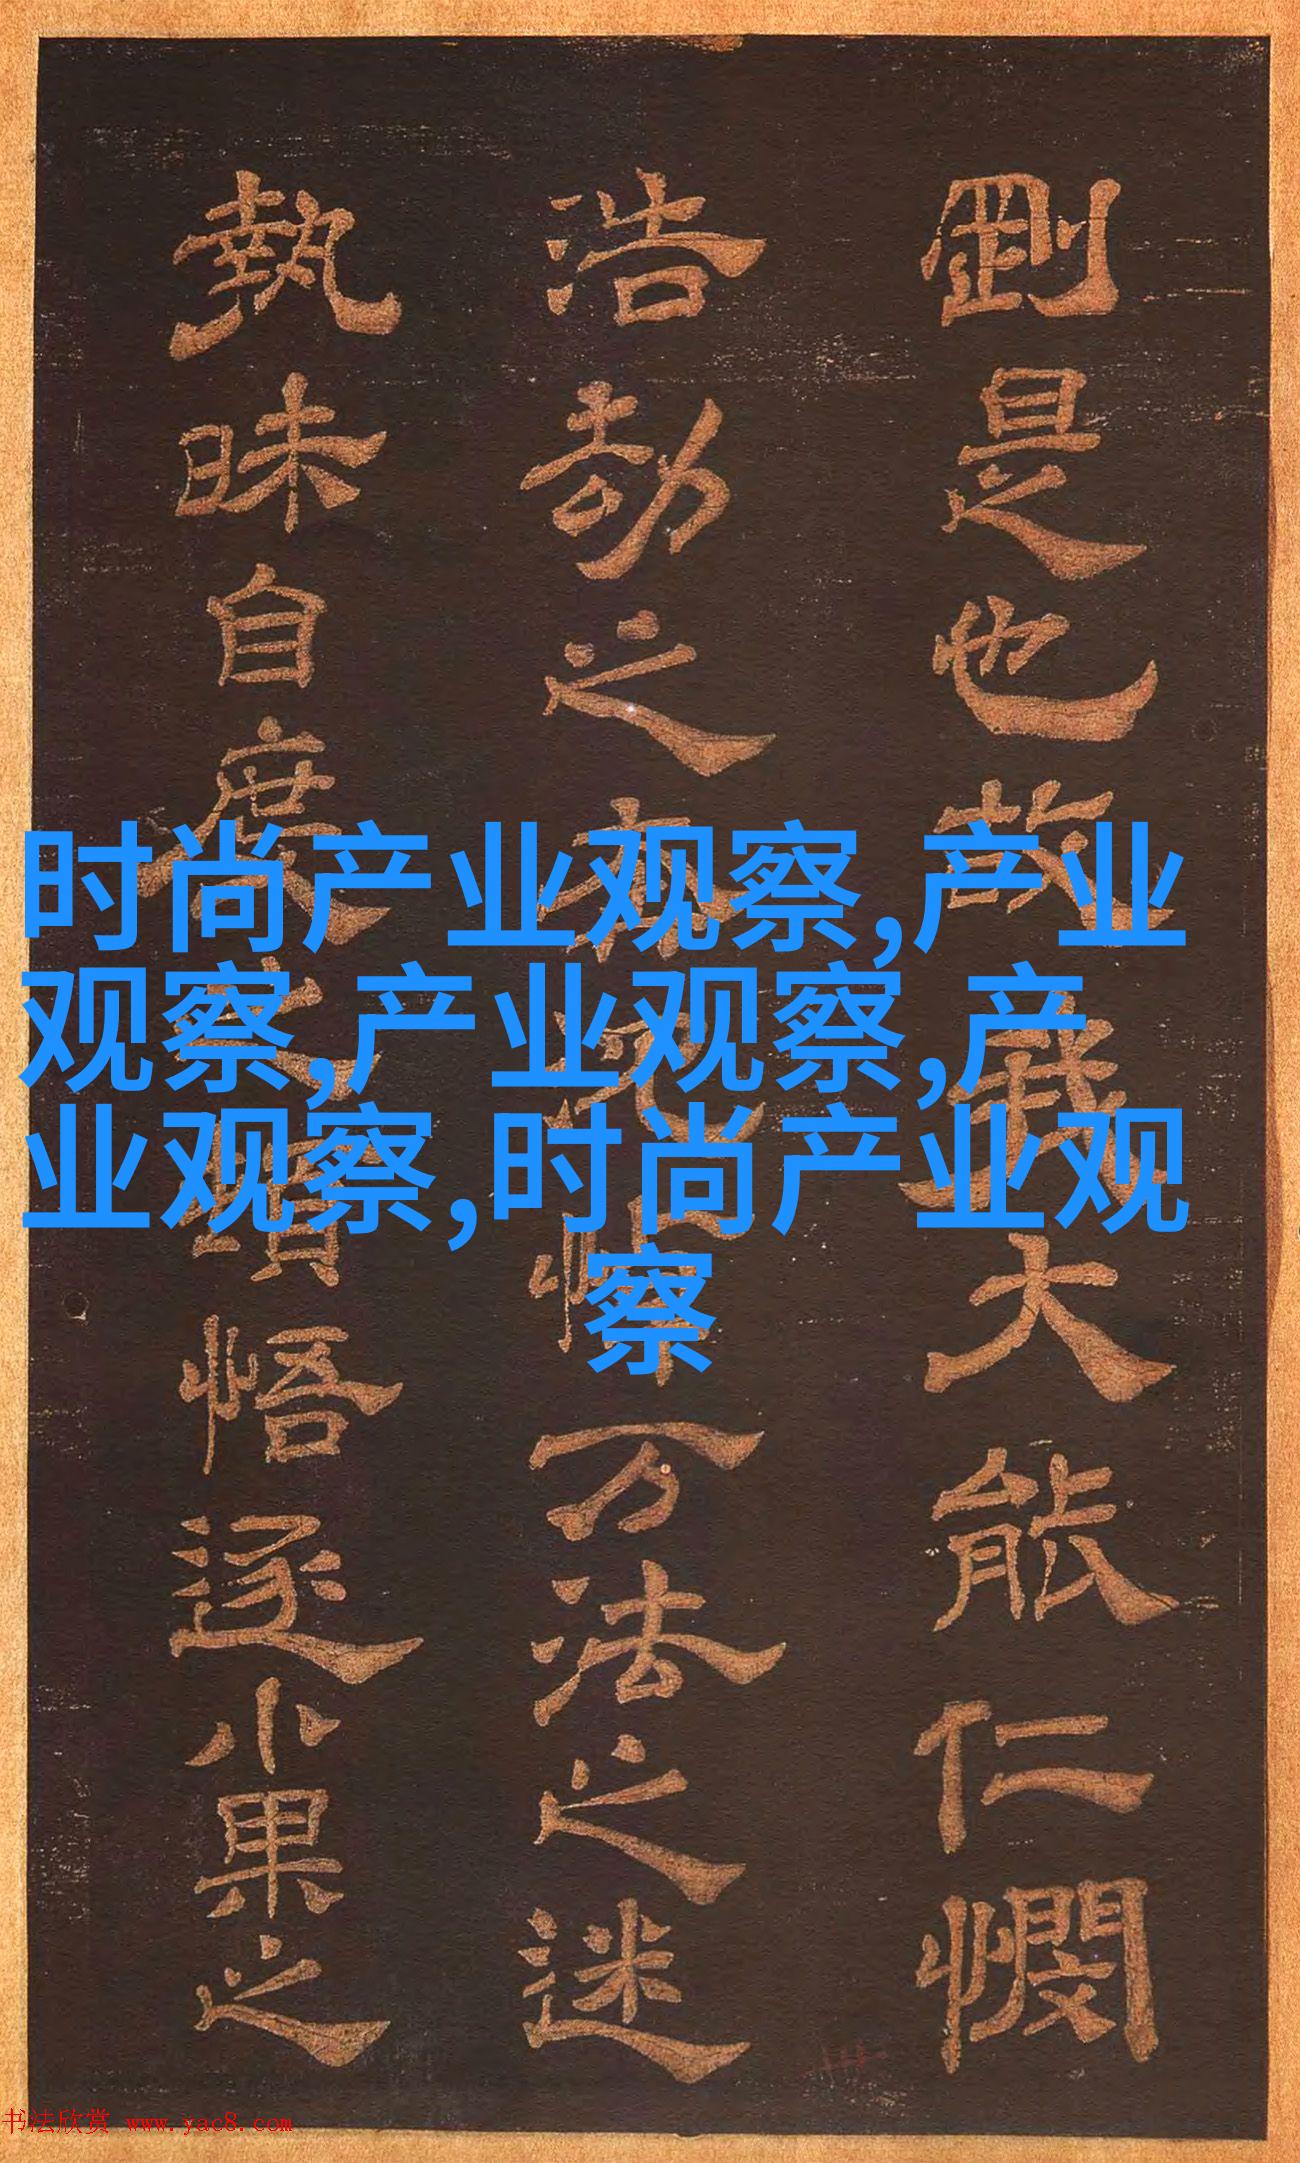 剛是也故我大能仁憫
浩劫之万法之迷
執昧自度之悟逐小果之
时尚产业观察,产业
观察,产业观察,产
业观察,时尚产业观
察
书法欣赏 www.yac8.com